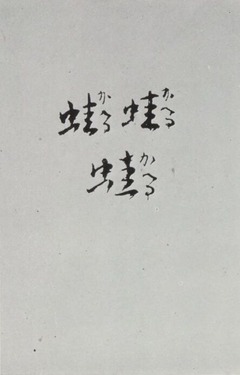 蛙かへる 蛙かへる
蛙かへる